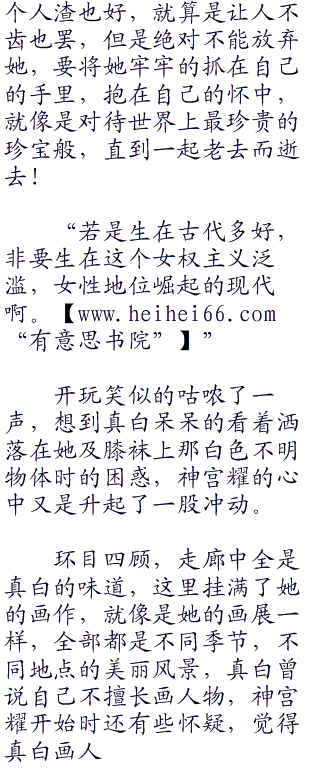 个人渣也好，就算是让人不
齿也罢，但是绝对不能放弃
她，要将她牢牢的抓在自己
的手里，抱在自己的怀中，
就像是对待世界上最珍贵的
珍宝般，直到一起老去而逝
去！
“若是生在古代多好，
非要生在这个女权主义泛
滥，女性地位崛起的现代
啊。【www.heihei66.com
“有意思书院”】”
开玩笑似的咕哝了一
声，想到真白呆呆的看着洒
落在她及膝袜上那白色不明
物体时的困惑，神宫耀的心
中又是升起了一股冲动。
环目四顾，走廊中全是
真白的味道，这里挂满了她
的画作，就像是她的画展一
样，全部都是不同季节，不
同地点的美丽风景，真白曾
说自己不擅长画人物，神宫
耀开始时还有些怀疑，觉得
真白画人